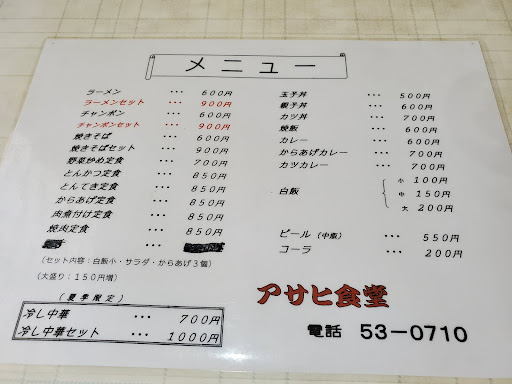 メニュー
ラーメン ・・・ 600円
ラーメンセット ・・・ 900円
チャンポン ・・・ 600円
チャンポンセット ・・・ 900円
焼きそば ・・・ 600円
焼きそばセット ・・・ 900円
野菜炒め定食 ・・・ 700円
とんかつ定食 ・・・ 850円
とんてき定食 ・・・ 850円
からあげ定食 ・・・ 850円
肉煮付け定食 ・・・ 850円
焼肉定食 ・・・ 850円
・・・
(セット内容:白飯小・サラダ・からあげ3個)
(大盛り:150円増)
(夏季限定)
冷し中華 ・・・ 700円
冷し中華セット ・・・ 1000円
玉子丼 ・・・ 500円
親子丼 ・・・ 600円
カツ丼 ・・・ 700円
焼飯 ・・・ 600円
カレー ・・・ 600円
からあげカレー ・・・ 700円
カツカレー ・・・ 700円
小 100円
白飯 中 150円
大 200円
ビール(中瓶) ・・・ 550円
コーラ ・・・ 200円
アサヒ食堂
電話 53-0710